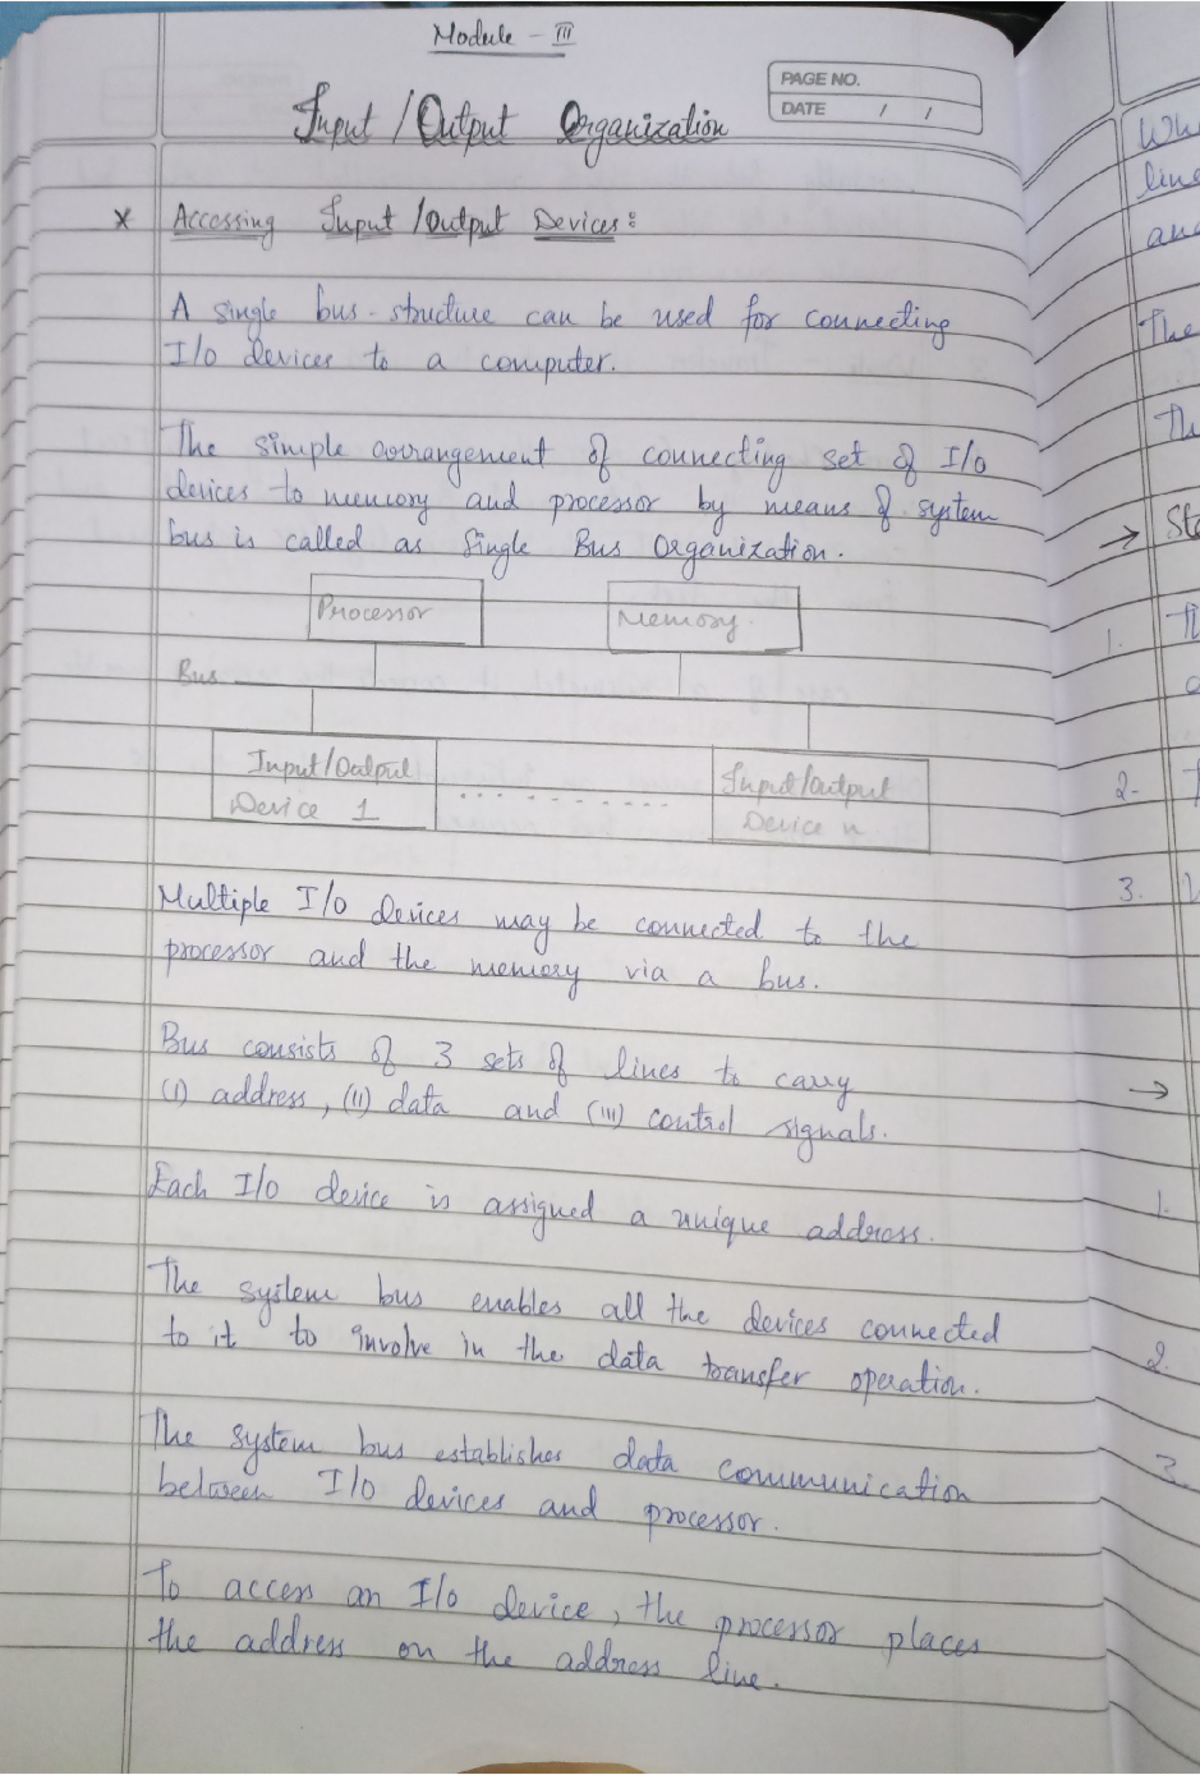 Module - III
PAGE NO.
DATE / /
Input/Output Organization
* Accessing Input/Output Devices:
A single bus-structure can be used for connecting
I/O devices to a computer.
The simple arrangement of connecting set of I/O
devices to memory and processor by means of system
bus is called as Single Bus Organization.
Processor
Memory
Bus
Input/Output
Device 1
..........
Input/Output
Device n
Multiple I/O devices may be connected to the
processor and the memory via a bus.
Bus consists of 3 sets of lines to carry
(i) address, (ii) data and (iii) control signals.
Each I/O device is assigned a unique address.
The system bus enables all the devices connected
to it to involve in the data transfer operation.
The system bus establishes data communication
between I/O devices and processor.
To access an I/O device, the processor places
the address on the address line.
line
The
→
1.
2.
3.
→
1.
2.
3.